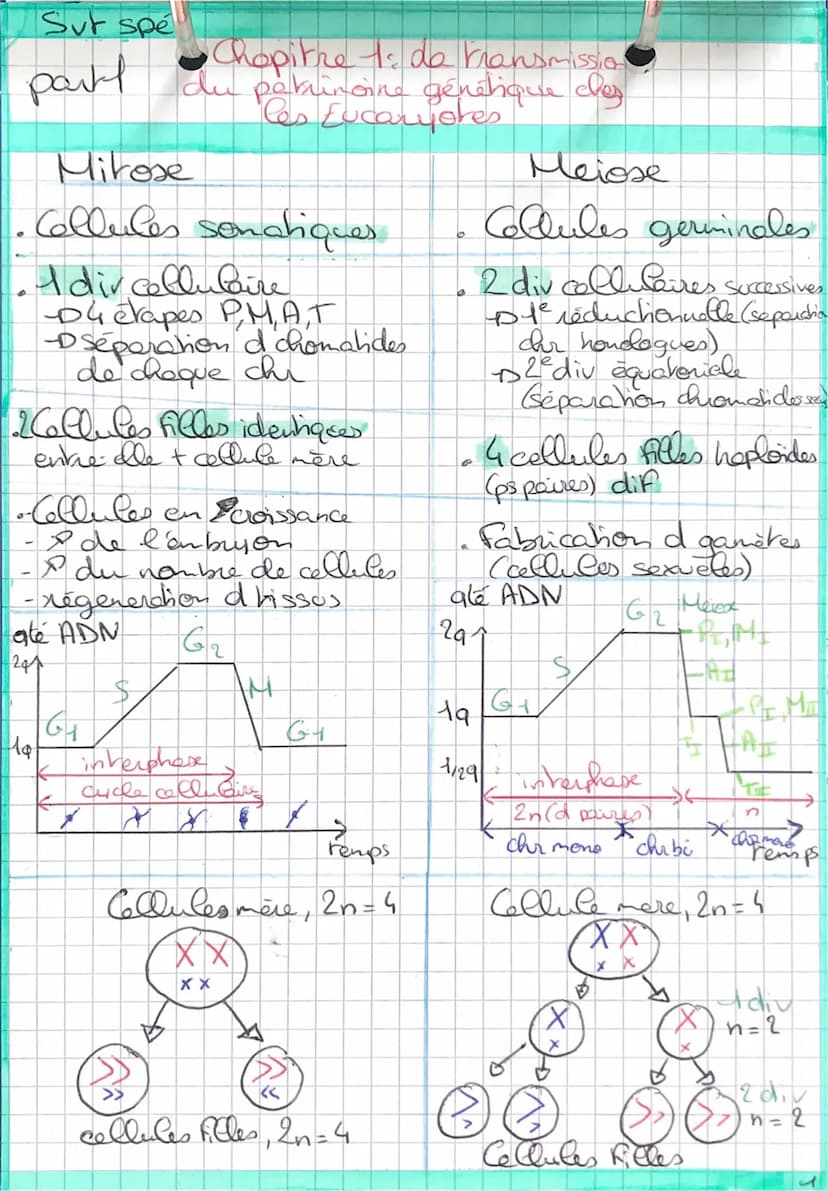 Svt spé
part 1
Chapitre 1: La transmission
du patrimoine génétique chez
les Eucaryotes
Mitose
. Cellules somatiques
. 1 div cellulaire
→ 4 étapes P,M,A,T
→ séparation d chomatides
de chaque chr
. 2 Cellules filles identiques
entre elle + cellule mère
. Cellules en croissance
- ↗ de l'embryon
- ↗ du nombre de cellules
- régéneration d tissus
qté ADN
2q
1q
G1
S
G2
M
G1
interphase
cycle cellulaire
temps
Cellules mère, 2n = 4
cellules filles, 2n = 4
Meiose
. Cellules germinales
. 2 div cellulaires successives
→ 1e réductionnelle (separation
chr homologues)
→ 2e div équatoriale
(séparation chromatides
. 4 cellules filles haploïdes
(ps paires) dif
. Fabrication d gamètes
(cellules sexuëles)
qté ADN
2q
1q
1/2q
G1
S
G2
Méiose
PI, MI
AI
TI
PII, MII
AII
TII
interphase
2n (d paires)
n
chr mono
chr bi
chr mono
temps
Cellule mere, 2n = 4
1 div
n = 2
2 div
n = 2
Cellules filles
1